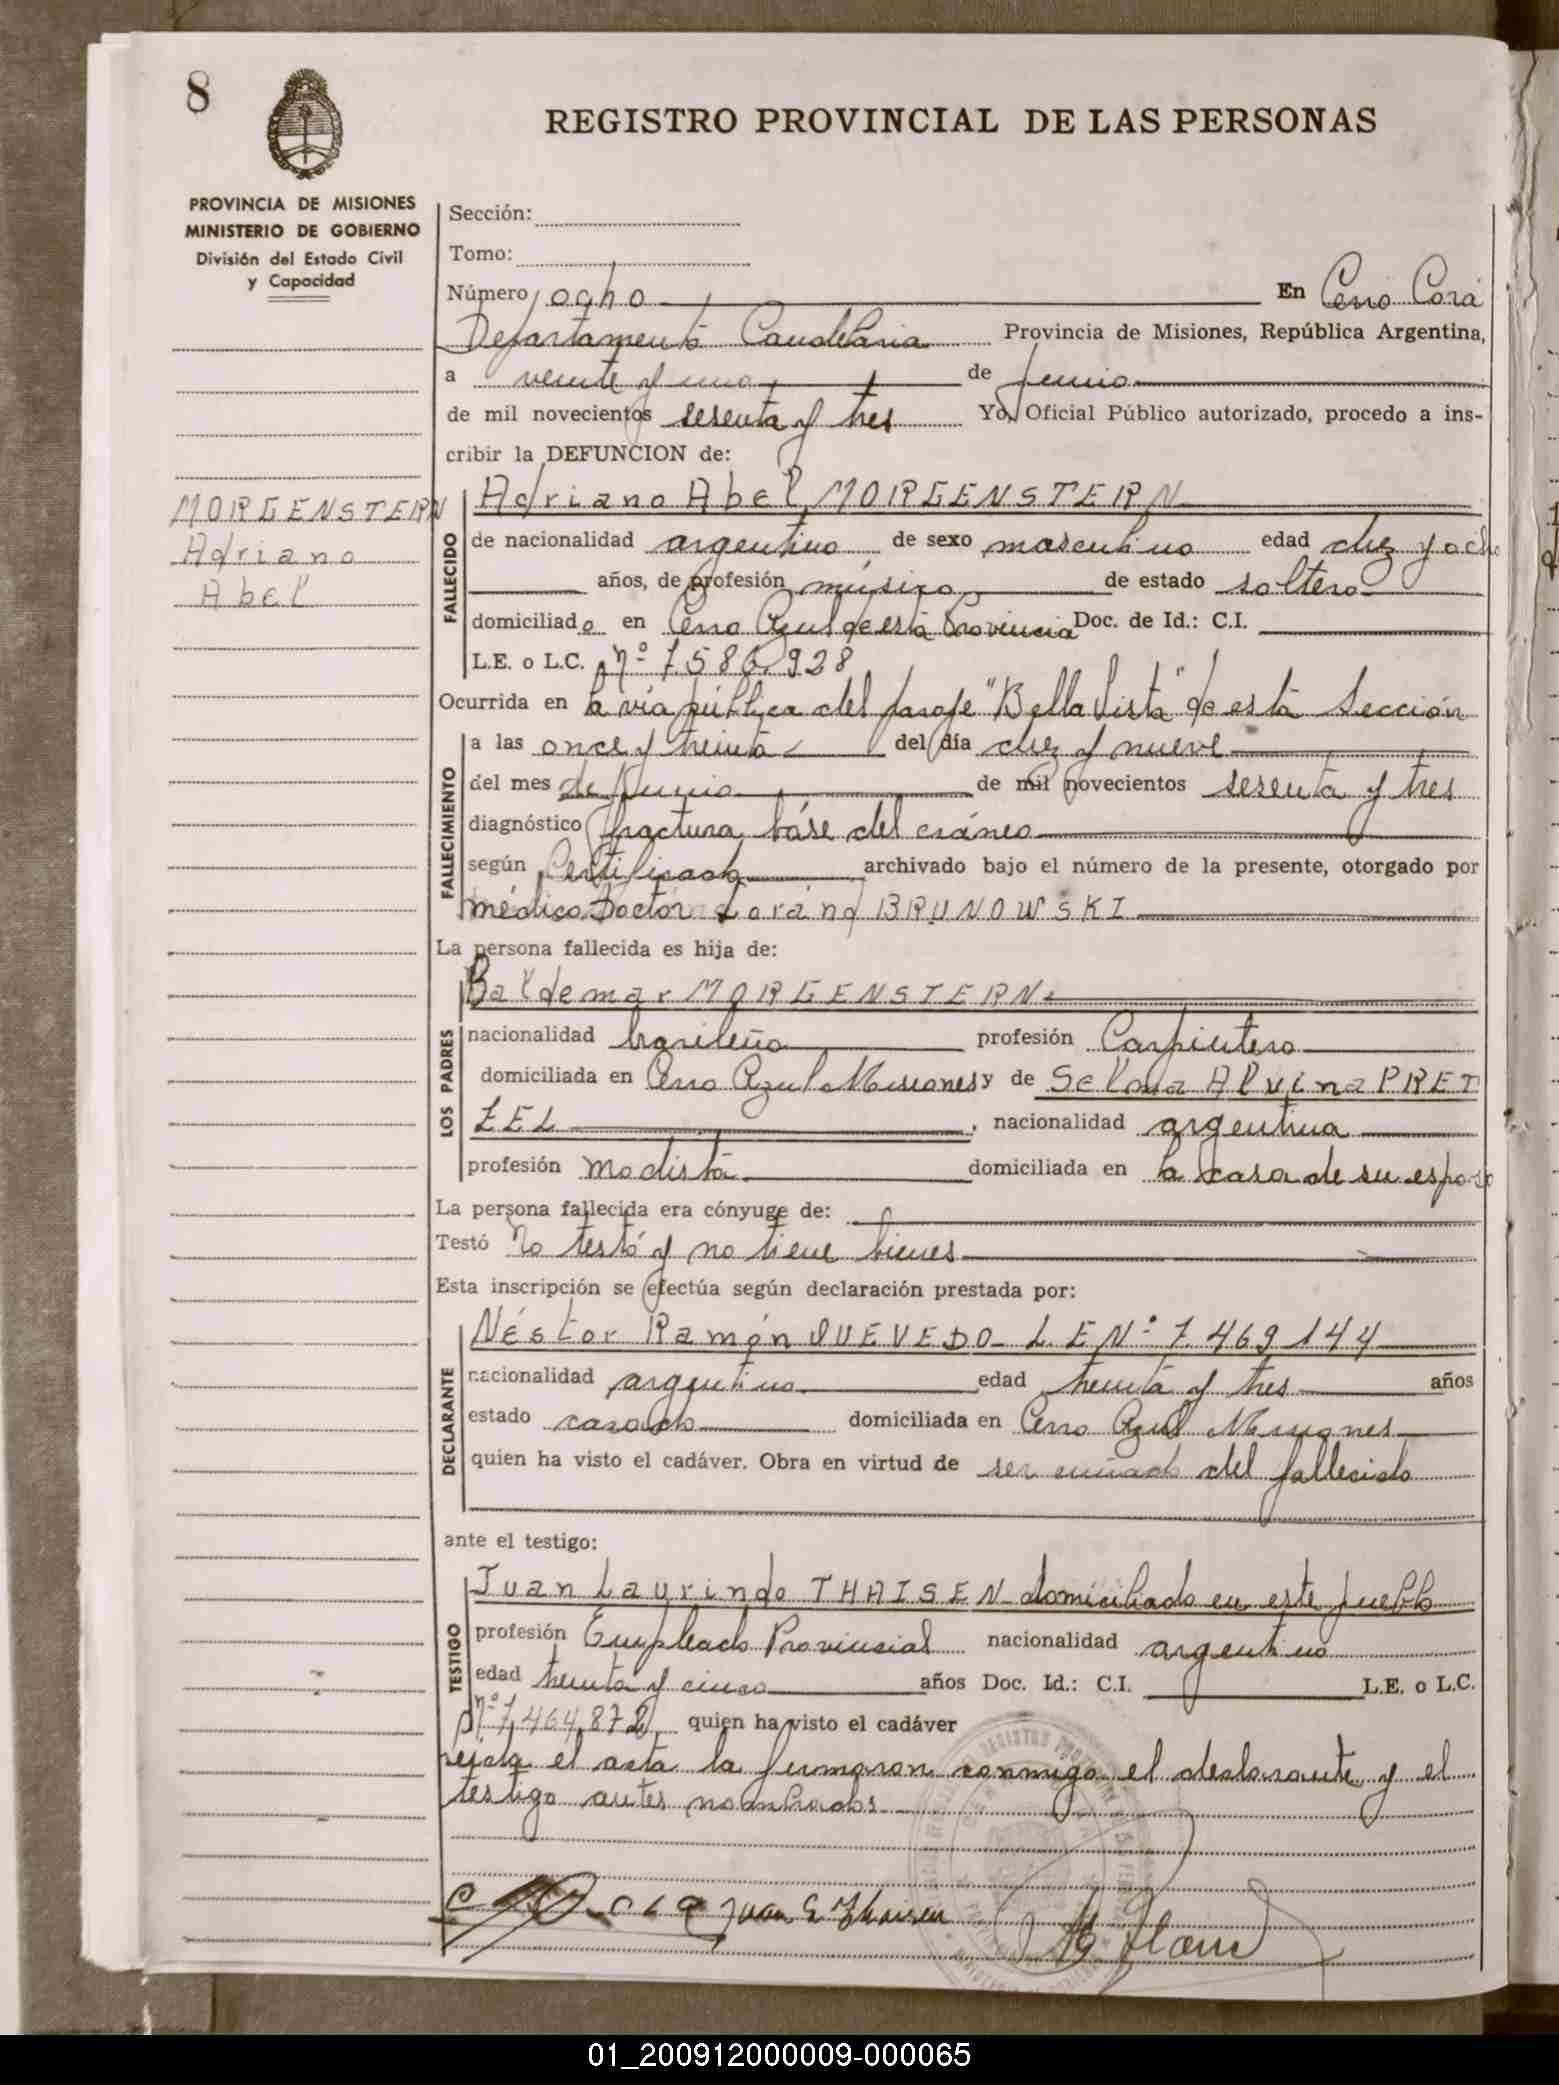 8
REGISTRO PROVINCIAL DE LAS PERSONAS
PROVINCIA DE MISIONES
MINISTERIO DE GOBIERNO
División del Estado Civil
y Capacidad
Sección:
Tomo:
Número ocho En Cerro Corá
Departamento Candelaria Provincia de Misiones, República Argentina,
a veinte y uno de Junio
de mil novecientos sesenta y tres Yo, Oficial Público autorizado, procedo a ins-
cribir la DEFUNCION de:
MORGENSTERN
Adriano
Abel
FALLECIDO
Adriano Abel MORGENSTERN
de nacionalidad argentino de sexo masculino edad diez y ocho
años, de profesión músico de estado soltero
domiciliado en Cerro Azul de esta Provincia Doc. de Id.: C.I.
L.E. o L.C. Nº 7.586.928
Ocurrida en la vía pública del paraje "Bella Vista" de esta Sección
FALLECIMIENTO
a las once y treinta del día diez y nueve
del mes de Junio de mil novecientos sesenta y tres
diagnóstico fractura báse del cráneo
según Certificado archivado bajo el número de la presente, otorgado por
médico Doctor Loránd BRUNOWSKI
La persona fallecida es hija de:
LOS PADRES
Baldemar MORGENSTERN
nacionalidad brasileño profesión Carpintero
domiciliada en Cerro Azul Misiones y de Selma Alvina PRET
ZEL , nacionalidad argentina
profesión Modista domiciliada en la casa de su esposo
La persona fallecida era cónyuge de:
Testó No testó y no tiene bienes
Esta inscripción se efectúa según declaración prestada por:
DECLARANTE
Néstor Ramón QUEVEDO L. E Nº 7.469.144
nacionalidad argentino edad treinta y tres años
estado casado domiciliada en Cerro Azul Misiones
quien ha visto el cadáver. Obra en virtud de ser cuñado del fallecido
ante el testigo:
TESTIGO
Juan Laurindo THAISEN domiciliado en este pueblo
profesión Empleado Provincial nacionalidad argentino
edad treinta y cinco años Doc. Id.: C.I. L.E. o L.C.
Nº 7.464.872 quien ha visto el cadáver
leida el acta la firmaron conmigo el declarante y el
testigo antes nombrados
Juan L Thaisen
01_200912000009-000065